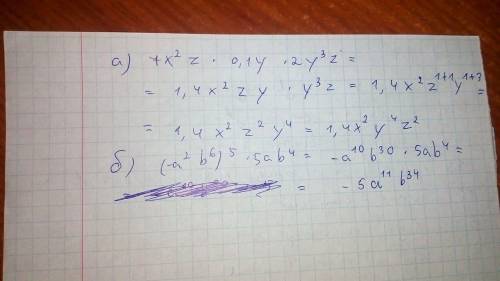 а) 7x² z · 0,1y · 2y³z =
= 1,4x² z y · y³z = 1,4x² z¹⁺¹y¹⁺³ =
= 1,4 x² z² y⁴ = 1,4x² y⁴ z²
б) (-a² b⁶)⁵ · 5ab⁴ = -a¹⁰b³⁰ · 5ab⁴ =
= -5a¹¹b³⁴